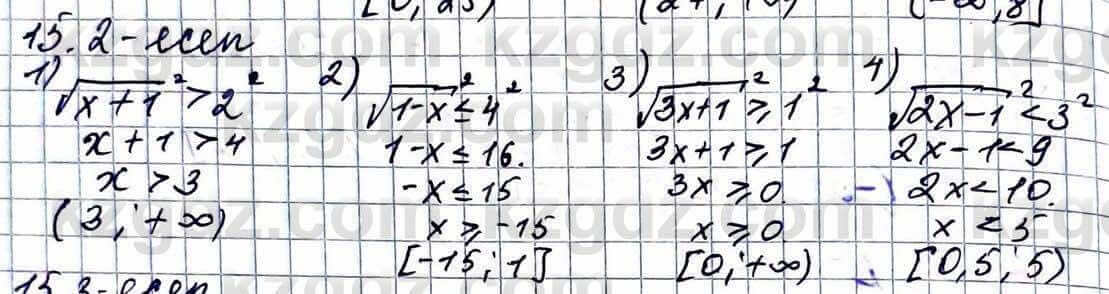 15.2-есеп
1) √x+1² > 2²
x+1 > 4
x > 3
(3; +∞)
2) √1-x² ≤ 4²
1-x ≤ 16.
-x ≤ 15
x ≥ -15
[-15; 1]
3) √3x+1² ≥ 1²
3x+1 ≥ 1
3x ≥ 0
x ≥ 0
[0; +∞)
4) √2x-1² < 3²
2x-1 < 9
2x < 10.
x < 5
[0,5; 5)
kzgdz.com